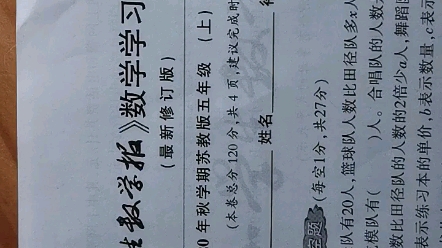 数学报》数学学习
(最新修订版)
0年秋学期苏教版五年级(上)
(本卷总分120分,共4页,建议完成时
姓名
(每空1分,共27分)
队有20人,篮球队人数比田径队多x人
模队有( )人。合唱队的人数
数比田径队的人数的2倍少a人,舞蹈
表示练习本的单价,b表示数量,c表示